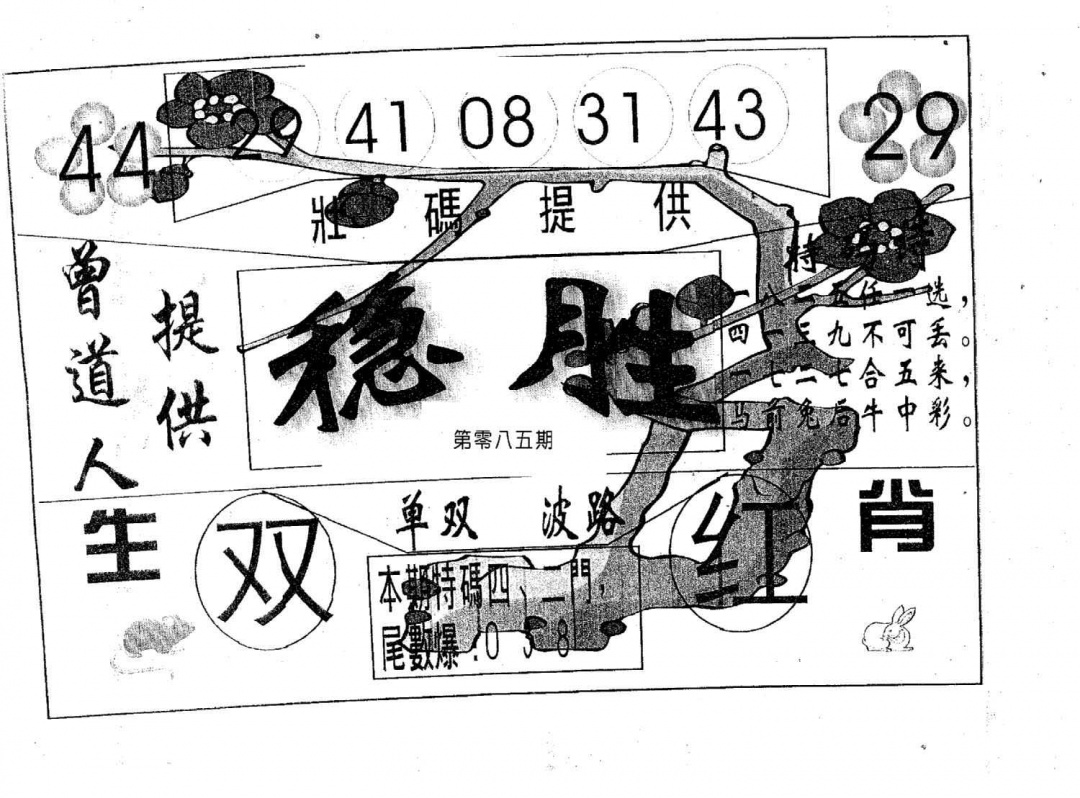 44 29 41 08 31 43 29
壯碼提供
曾道人
提供
稳胜
第零八五期
特 特
一八二五任一选，
四一三九不可丢。
一七二七合五来，
马前兔后牛中彩。
单双 波路
生 双 红 肖
本期特碼四、二門，
尾數爆：0 3 8